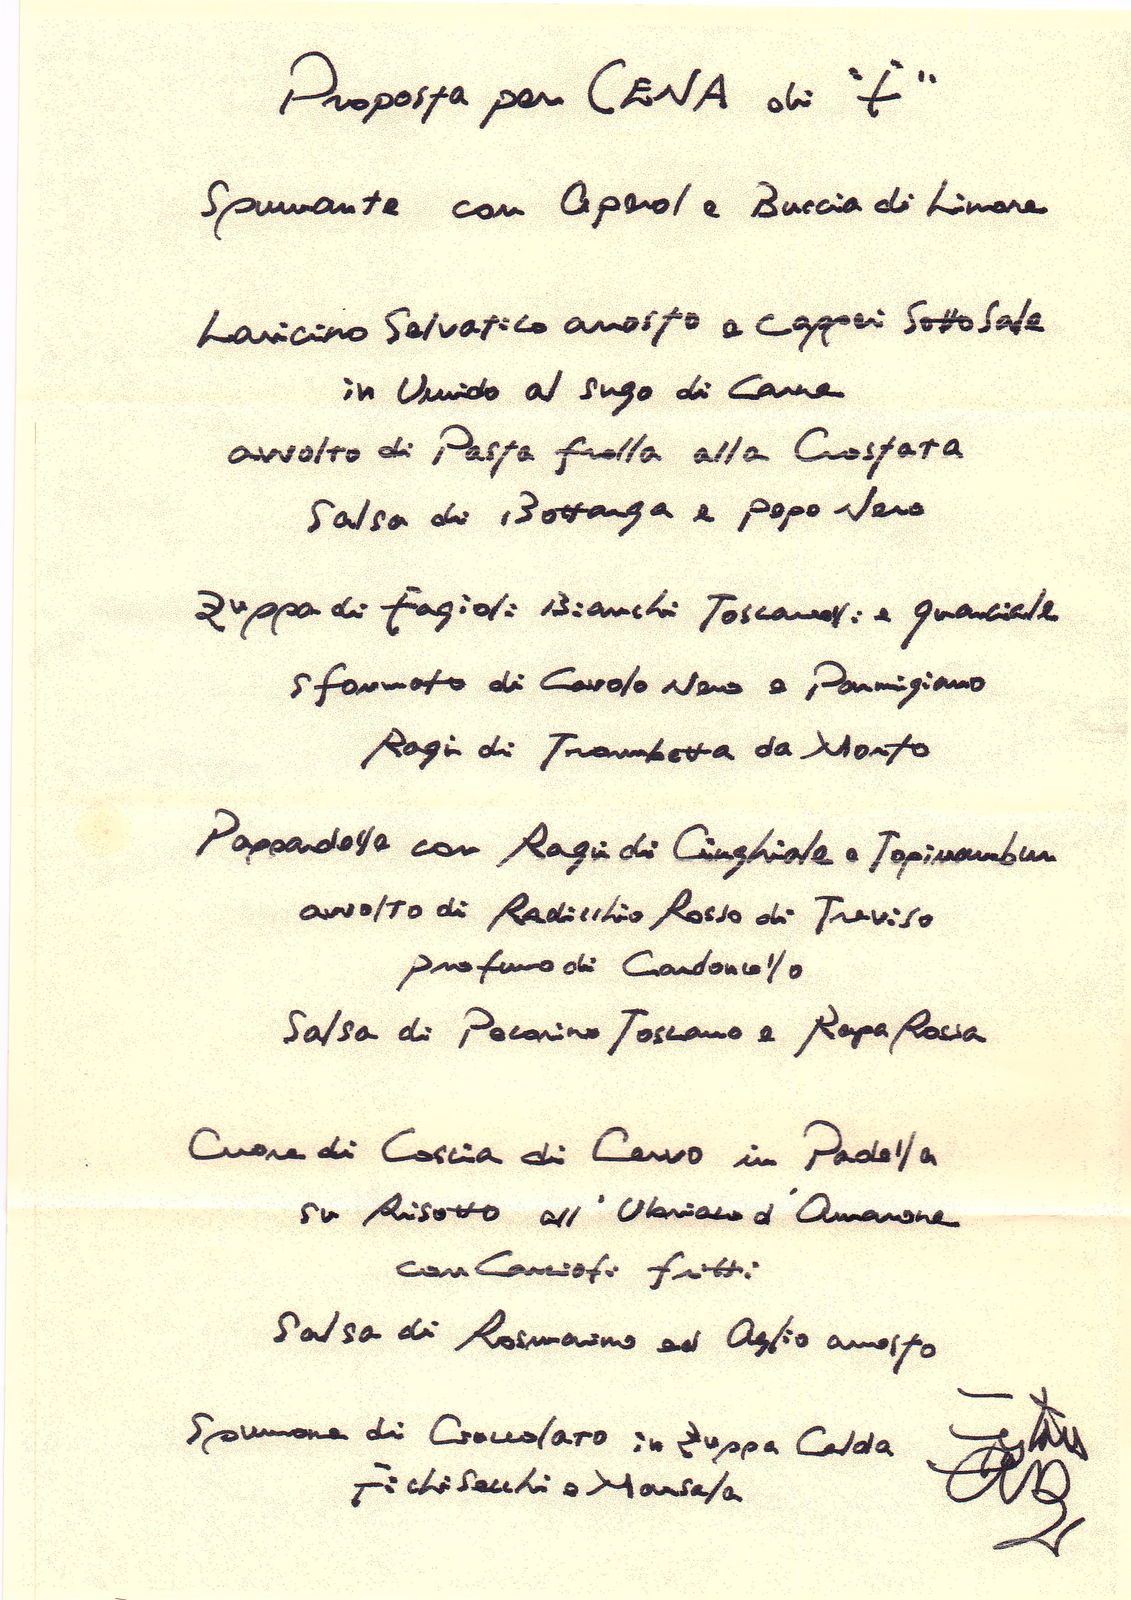 Proposta per CENA di "f"
Spumante con Aperol e Buccia di Limone
Laricino Selvatico arrosto e capperi Sotto Sale
in Umido al sugo di Carne
avvolto di Pasta frolla alla Crostata
Salsa di Bottarga e pepe Nero
Zuppa di Fagioli Bianchi Toscanelli e guanciale
sformato di Cavolo Nero e Parmigiano
Ragù di Trombetta da Morto
Pappardelle con Ragù di Cinghiale e Topinambur
avvolto di Radicchio Rosso di Treviso
profumo di Cardoncello
Salsa di Pecorino Toscano e Rapa Rossa
Cuore di Coscia di Cervo in Padella
su Risotto all'Ubriaco d'Amarone
con Carciofi fritti
Salsa di Rosmarino ed Aglio arrosto
Spumone di Cioccolato in Zuppa Calda
Fichi Secchi e Marsala